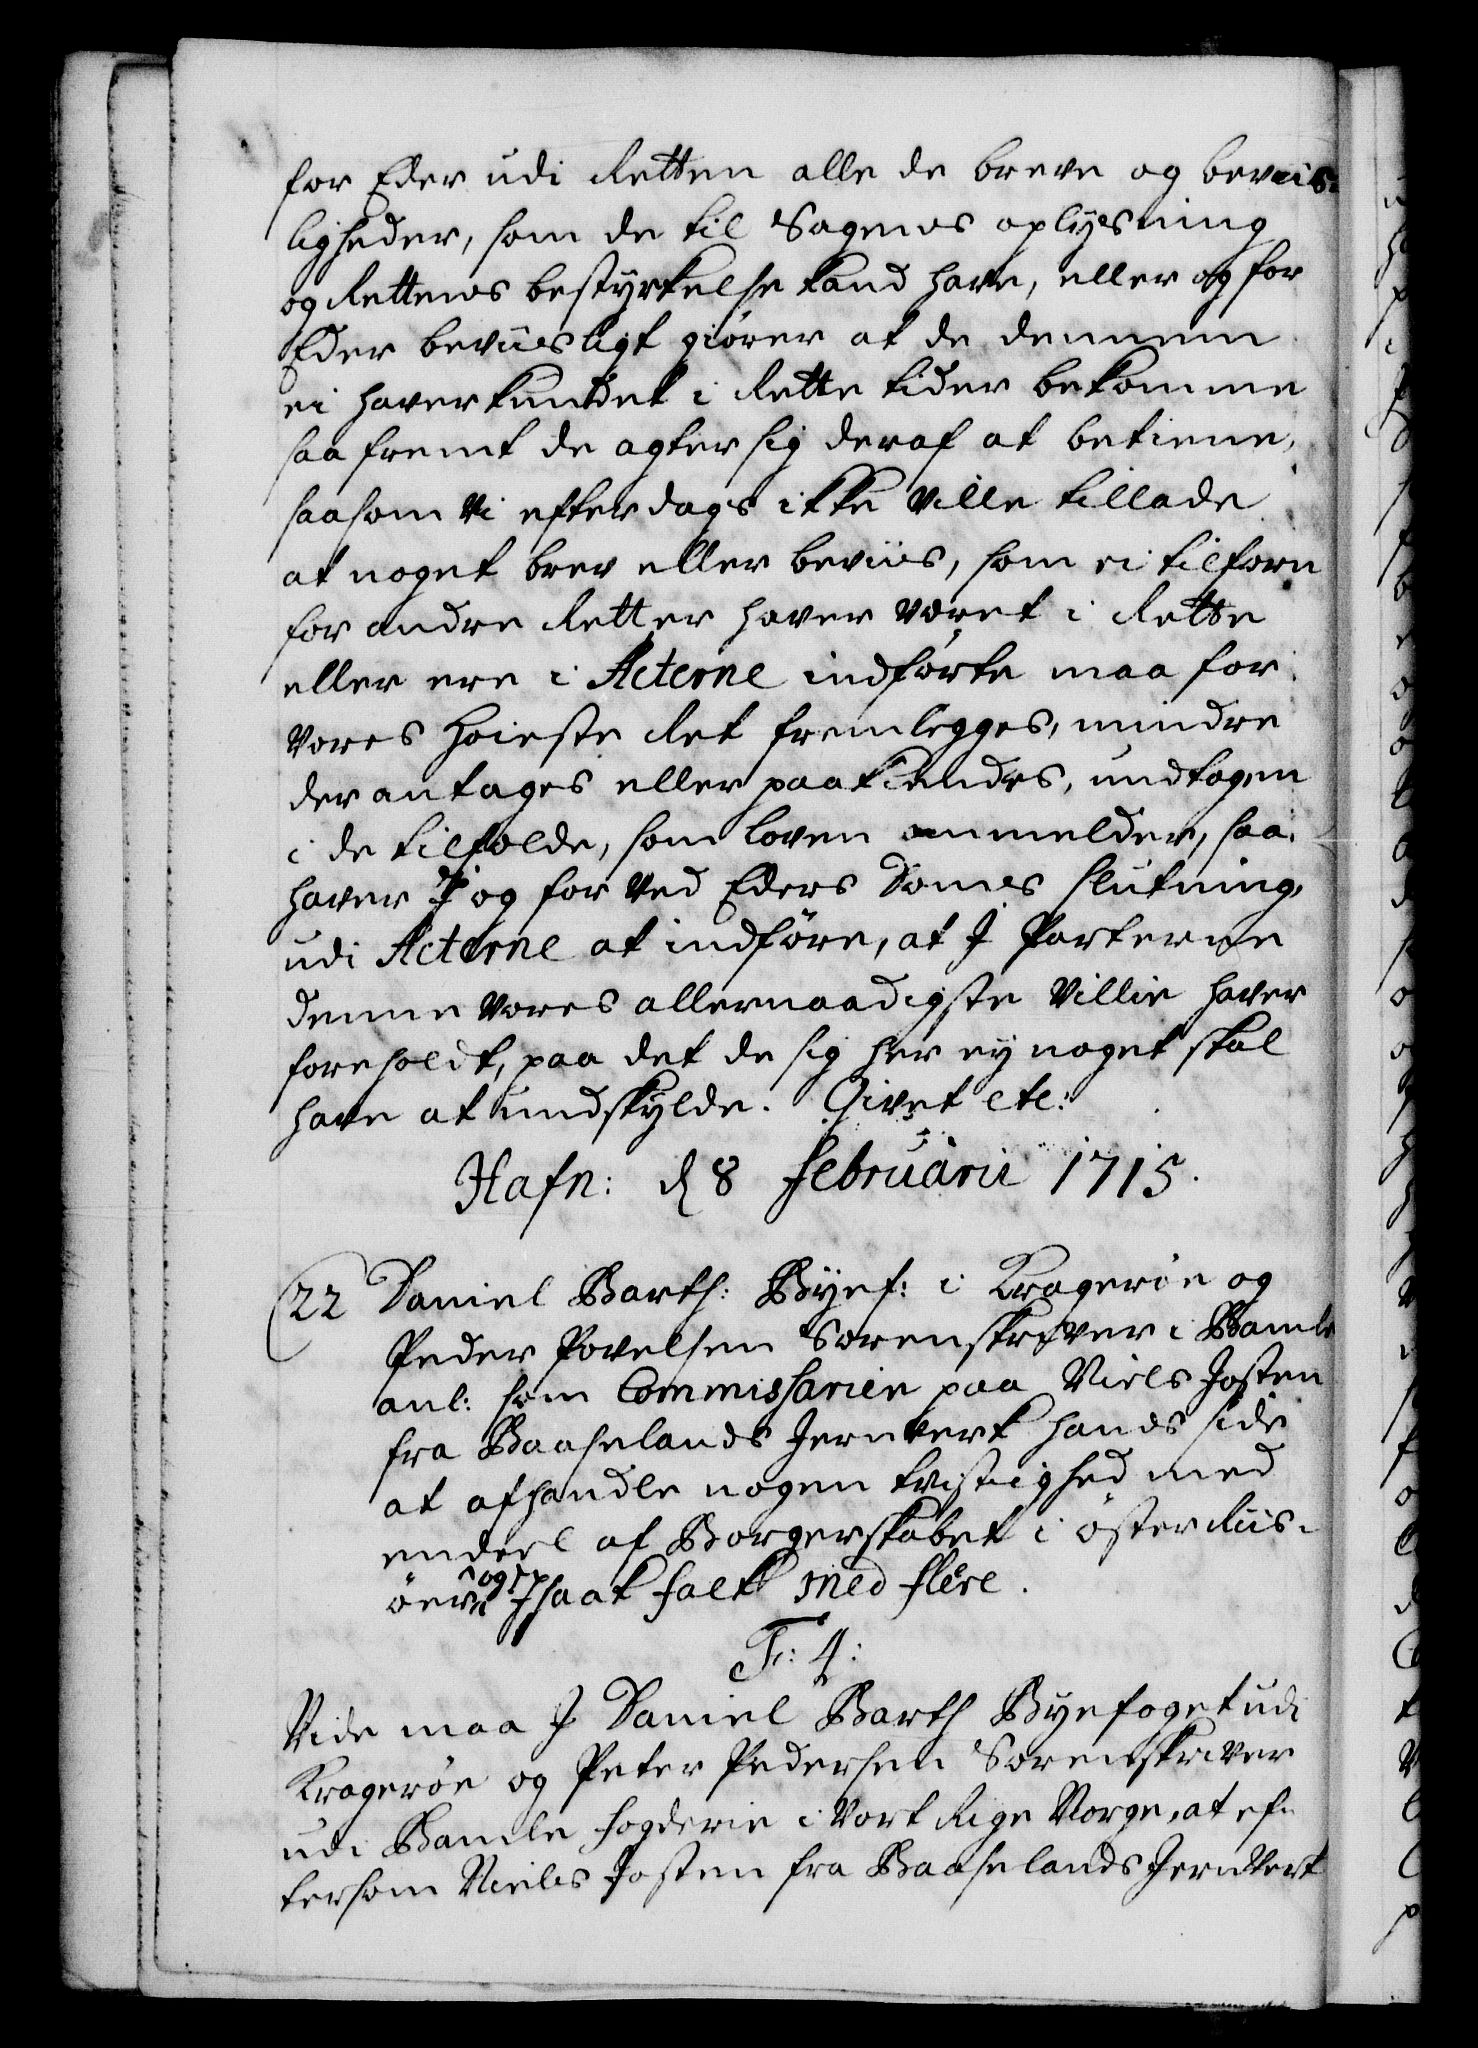 for Eder udi Retten alle de breve og beviis-
ligheder, som de til Sagens oplysning
og Rettens bestyrkelse kand have, eller og for
Eder beviisligt giører at de dennem
ei haver kundet i Rette tider bekomme
saa fremt de agter sig deraf at betiene,
saasom Vi efterdags ikke Ville tillade
at noget brev eller beviis, som ei tilforn
for andre Retter haver veret i Rette
eller ere i Acterne indførte maa for
vores Høieste Ret fremlegges, mindre
der antages eller paakiendes, undtagen
i de tilfelde, som loven ommelder, saa
haver I og for ved Eders Domes slutning,
udi Acterne at indføre, at J Parterne
denne vores allernaadigste Villie haver
foreholdt, paa det de sig her ey noget skal
have at undskylde. Givet etc:
Hafn: d 8 februarii 1715.
22 Daniel Barth: Byef: i Kragerøe og
Peder Povelsen Sorenskriver i Bamle
anl: som Commissarier paa Niels Josten
fra Baaselands Jernverk hands side
at afhandle nogen tvistighed med
endeel af Borgerskabet i østerRiis-
øer og Isaak falk med flere.
F: 4:
Vide maa J Daniel Barth Byefoget udi
Kragerøe og Peter Pedersen Sorenskriver
udi Bamle fogderie i Vort Rige Norge, at ef-
tersom Niels Josten fra Baaselands JernVerk